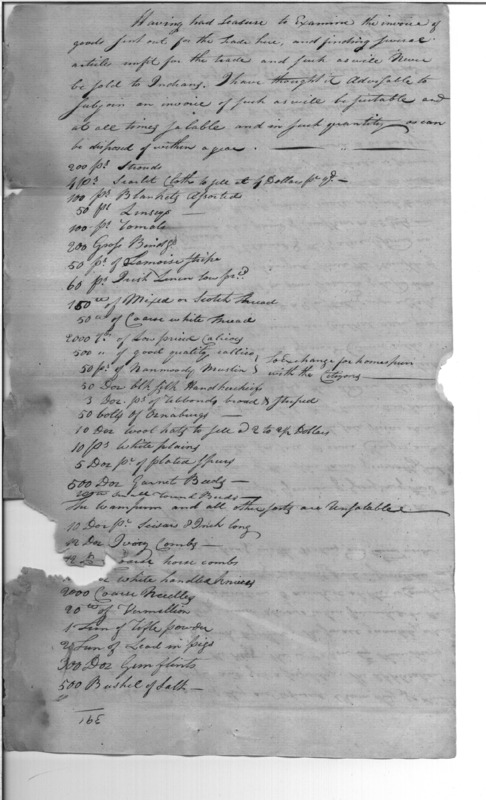 Having had Leasure to Examine the invoice of
goods sent out for the trade here, and finding several
article unfit for the trade and such as will Never
be sold to Indians, I have thought it Advisable to
subjoin an invoice of such as will be suitable and
at all times salable and in such quantity as can
be disposed of within a year. —
200 ps. Strouds
4 ps. Scarlet Cloth to sell at 4 Dollars pr yd. —
100 ps Blankets Assorted
50 ps Linseys —
100 ps Romals
200 Gross Bindgs
50 ps of Lamoise stripe
60 ps Irish Linen low prd.
150 lb of Mixed or Scotch thread
50 lb of Coarse white thread
2000 yds. of Low prised Calicoes
500 " of good quality callico } to Exchange for homespun
50 ps. of Muslin } with the Citizens
50 Doz blk silk Handkerchiefs
3 Doz ps of Ribbonds broad & striped
50 bolts of Oznabrugs —
10 Doz wool hats to sell @ 2 to 2½ Dollars
10 ps white plains
5 Doz pr of plated spurs
500 Doz Garnet Beeds —
small round Beeds —
The Wampum and all other sorts are Unsalable —
10 Doz pr. Scisars 8 Inch long
Doz Ivory Combs —
Coarse horse combs
white handled knives
2000 Coarse Needles
20 lb of Vermillion
1 Tun of rifle powder
2 Tun of Lead in pigs
300 Doz Gun flints
500 Bushel of Salt —
165